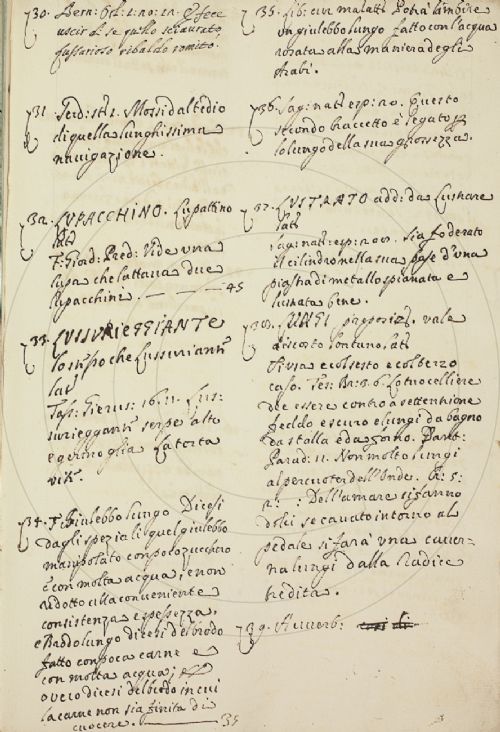 730. Bern: Orl: 2: no: 12. E fece
uscir di se quello sciaurato,
fussarioso ribaldo vomito.
731. Serd: st: 2. Mossi dal tedio
di quella lunghissima
navigazione.
732. LUPACCHINO. Lupattino
lat
F: Giord: Pred: Vide una
lupa che lattava due
lupacchini. 45
733. LUSSUREGGIANTE
lo stesso che Lussuriante
lat
Tass: Gierus: 16. 11. Lus:
sureggiante serpe alto
e germoglia La torta
vite.
734. Giulebbo lungo Dicesi
dagli speziali quel giulebbo
manipolato con poco zucchero
e con molta acqua, e non
ridotto alla conveniente
consistenza e spessezza.
e Brodo lungo dicesi del brodo
fatto con poca carne e
con molta acqua;
overo dicesi del brodo in cui
la carne non sia finita di
cuocere. 35
735. Lib: cur malatt: Potrà lambire
un giulebbo lungo fatto con l'acqua
rosata alla maniera degli
Arabi.
736. Sag: nat: esp: 20. Questo
secondo braccetto è segato p
lo lungo della sua grossezza.
737. LUSTRATO add: da Lustrare
lat
Sag: nat: esp: 205. Sia foderato
il cilindro nella sua base d'una
piastra di metallo spianata e
lustrata bene.
738. LUNGI preposiz. vale
discosto, lontano, lat
Si usa e col sesto e col terzo
caso. Tes: Br: 3. 6. Lo tuo celliere
dee essere contro a settentrione
freddo e scuro e lungi da bagno
da stalla e da forno. Dant:
Parad: 11. Non molto lungi
al percuoter dell'onde. Cr: 5:
2: : Dell'amare si fanno
dolci se cavato intorno al
pedale si farà una caver-
na lungi dalla Radice
tre dita.
739. Avverb: